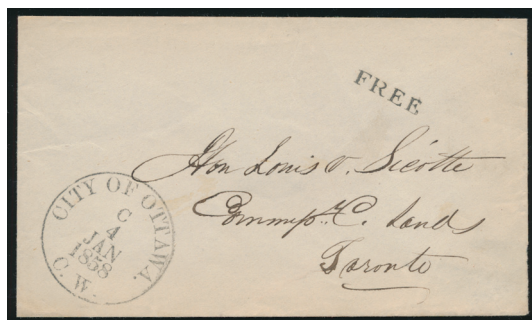 FREE
Hon Louis V. Sicotte
Commiss. C. Lands
Toronto
CITY OF OTTAWA.
C
4
JAN
1858
C. W.